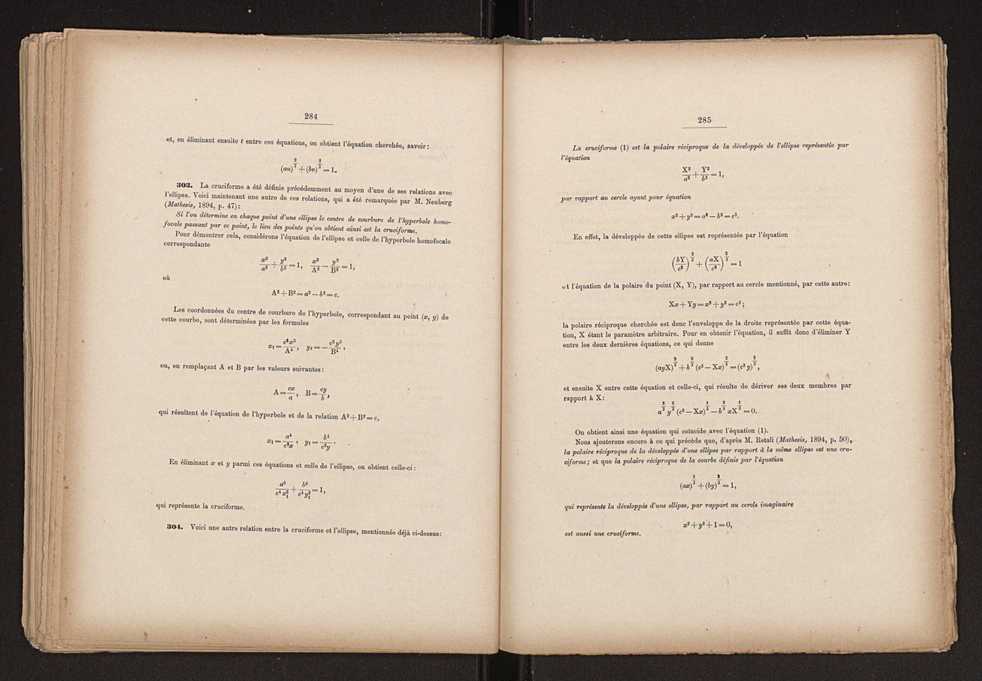 284
et, en éliminant ensuite t entre ces équations, on obtient l'équation cherchée, savoir:
(au)^{2/3} + (bv)^{2/3} = 1.
303. La cruciforme a été définie précédemment au moyen d'une de ses relations avec
l'ellipse. Voici maintenant une autre de ces relations, qui a été remarquée par M. Neuberg
(Mathesis, 1894, p. 47):
Si l'on détermine en chaque point d'une ellipse le centre de courbure de l'hyperbole homo-
focale passant par ce point, le lieu des points qu'on obtient ainsi est la cruciforme.
Pour démontrer cela, considérons l'équation de l'ellipse et celle de l'hyperbole homofocale
correspondante
x²/a² + y²/b² = 1, x²/A² − y²/B² = 1,
où
A² + B² = a² − b² = c.
Les coordonnées du centre de courbure de l'hyperbole, correspondant au point (x, y) de
cette courbe, sont déterminées par les formules
x₁ = c²x³/A⁴, y₁ = − c²y³/B⁴,
ou, en remplaçant A et B par les valeurs suivantes:
A = cx/a, B = cy/b,
qui résultent de l'équation de l'hyperbole et de la relation A² + B² = c,
x₁ = a⁴/c²x, y₁ = b⁴/c²y.
En éliminant x et y parmi ces équations et celle de l'ellipse, on obtient celle-ci:
a⁶/c⁴x₁² + b⁶/c⁴y₁² = 1,
qui représente la cruciforme.
304. Voici une autre relation entre la cruciforme et l'ellipse, mentionnée déjà ci-dessus:
285
La cruciforme (1) est la polaire réciproque de la développée de l'ellipse représentée par
l'équation
X²/a² + Y²/b² = 1,
par rapport au cercle ayant pour équation
x² + y² = a² − b² = c².
En effet, la développée de cette ellipse est représentée par l'équation
(bY/c²)^{2/3} + (aX/c²)^{2/3} = 1
et l'équation de la polaire du point (X, Y), par rapport au cercle mentionné, par cette autre:
Xx + Yy = x² + y² = c²;
la polaire réciproque cherchée est donc l'enveloppe de la droite représentée par cette équa-
tion, X étant le paramètre arbitraire. Pour en obtenir l'équation, il suffit donc d'éliminer Y
entre les deux dernières équations, ce qui donne
(ayX)^{2/3} + b^{2/3} (c² − Xx)^{2/3} = (c²y)^{2/3},
et ensuite X entre cette équation et celle-ci, qui résulte de dériver ses deux membres par
rapport à X:
a^{2/3} y^{2/3} (c² − Xx)^{1/3} − b^{2/3} xX^{1/3} = 0.
On obtient ainsi une équation qui coïncide avec l'équation (1).
Nous ajouterons encore à ce qui précède que, d'après M. Retali (Mathesis, 1894, p. 50),
la polaire réciproque de la développée d'une ellipse par rapport à la même ellipse est une cru-
ciforme; et que la polaire réciproque de la courbe définie par l'équation
(ax)^{2/3} + (by)^{2/3} = 1,
qui représente la développée d'une ellipse, par rapport au cercle imaginaire
x² + y² + 1 = 0,
est aussi une cruciforme.